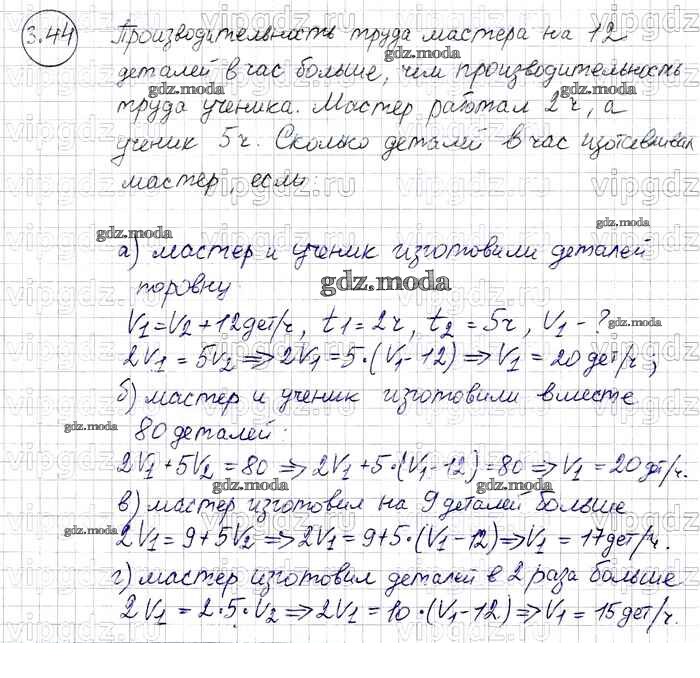 3.44 Производительность труда мастера на 12
деталей в час больше, чем производительность
труда ученика. Мастер работал 2ч, а
ученик 5ч. Сколько деталей в час изготавливал
мастер, если:
а) мастер и ученик изготовили деталей
поровну
V1=V2+12дет/ч, t1=2ч, t2=5ч, V1-?
2V1=5V2⇒2V1=5·(V1-12)⇒V1=20дет/ч;
б) мастер и ученик изготовили вместе
80 деталей:
2V1+5V2=80⇒2V1+5·(V1-12)=80⇒V1=20дет/ч.
в) мастер изготовил на 9 деталей больше
2V1=9+5V2⇒2V1=9+5·(V1-12)⇒V1=17дет/ч.
г) мастер изготовил деталей в 2 раза больше
2V1=2·5·V2⇒2V1=10·(V1-12)⇒V1=15дет/ч.
gdz.moda
vipgdz.ru